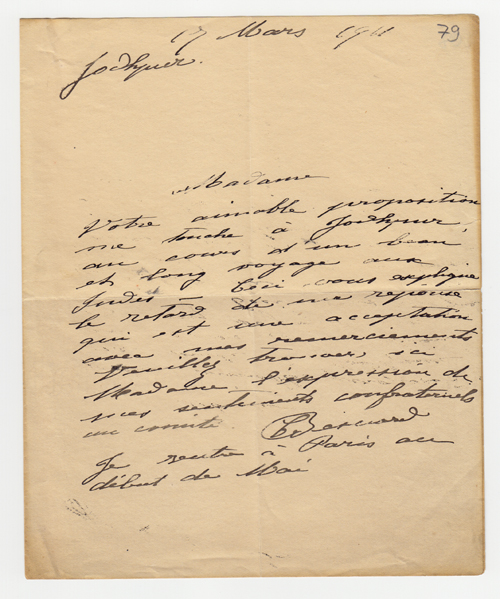 79
17 Mars 1911
Jodhpur.
Madame
Votre aimable proposition
me touche à Jodhpur,
au cours d'un beau
et long voyage aux
Indes — Ceci vous explique
le retard de ma réponse
qui est une acceptation
avec mes remerciements
Veuillez trouver ici
Madame l'expression de
mes sentiments confraternels
au comité
Besnard
Je rentre à Paris au
début de Mai